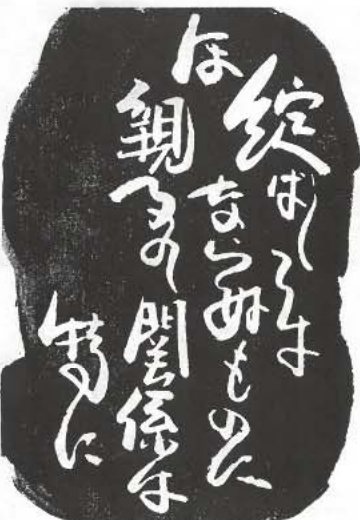 綻ばしては
ならぬものに
は
親子の関係は
特に